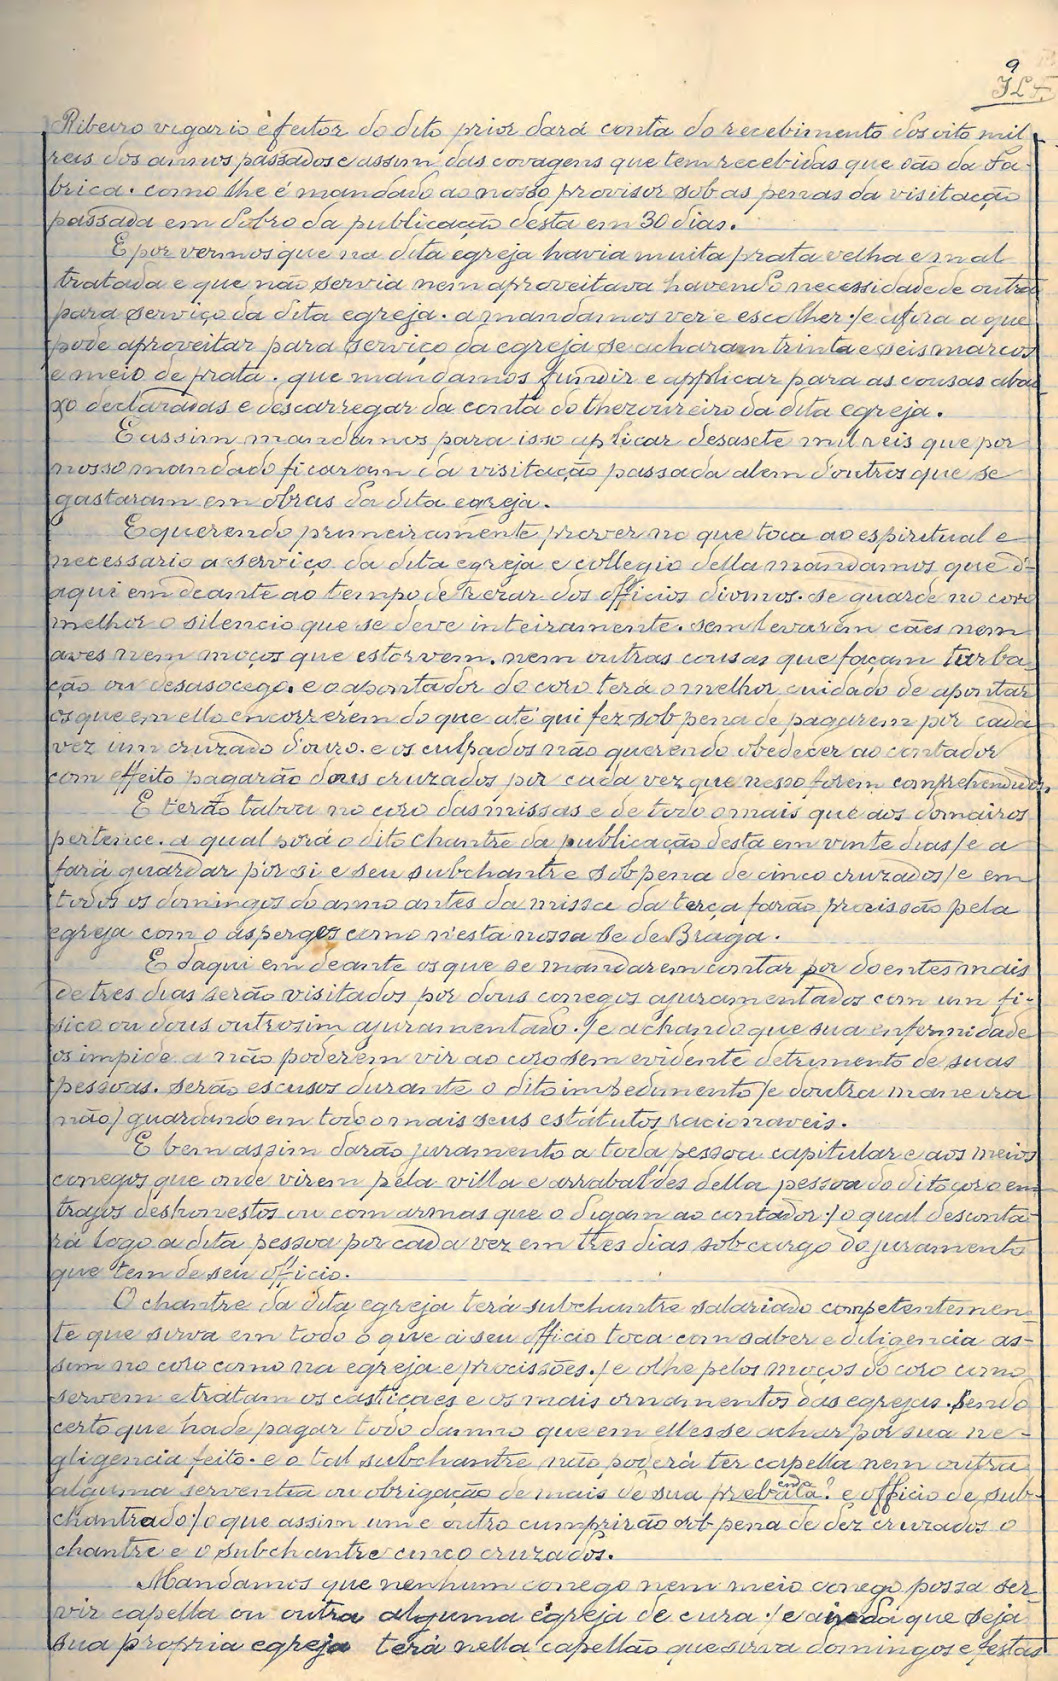 9
Ribeiro vigario e feitor do dito prior dará conta do recebimento dos oito mil
reis dos annos passados e assim das covagens que tem recebidas que são da Fa-
brica. como lhe é mandado ao nosso provisor sob as penas da visitação
passada em dobro da publicação desta em 30 dias.
E por vermos que na dita egreja havia muita prata velha e mal
tratada e que não servia nem aproveitava havendo necessidade de outra
para serviço da dita egreja. a mandamos ver e escolher./e afóra a que
pode aproveitar para serviço da egreja se acharam trinta e seis marcos
e meio de prata. que mandamos fundir e applicar para as cousas abai
xo declaradas e descarregar da conta do thezoureiro da dita egreja.
E assim mandamos para isso aplicar desasete mil reis que por
nosso mandado ficaram da visitação passada alem d'outros que se
gastaram em obras da dita egreja.
E querendo primeiramente prover no que toca ao espiritual e
necessario a serviço da dita egreja e collegio della mandamos que d'-
aqui em deante ao tempo de rezar dos officios divinos. se guarde no coro
melhor o silencio que se deve inteiramente. sem levarem cães nem
aves nem moços que estorvem. nem outras cousas que façam turba-
ção ou desasocego. e o apontador do coro terá o melhor cuidado de apontar
os que em ello encorrerem do que até qui fez sob pena de pagarem por cada
vez um cruzado d'ouro. e os culpados não querendo obedecer ao contador
com effeito pagarão dous cruzados por cada vez que nesso forem comprehendidos
E terão taboa no coro das missas e de todo o mais que aos domairos
pertence. a qual porá o dito chantre da publicação desta em vinte dias/e a
fará guardar por si e seu subchantre sob pena de cinco cruzados/e em
todos os domingos do anno antes da missa da terça farão procissão pela
egreja com o asperges como n'esta nossa Se de Braga.
E daqui em deante os que se mandarem contar por doentes mais
de tres dias serão visitados por dous conegos ajuramentados com um fi-
sico ou dous outrosim ajuramentado./e achando que sua enfermidade
os impide a não poderem vir ao coro sem evidente detrimento de suas
pessoas. serão escusos durante o dito impedimento/e doutra maneira
não/guardando em todo o mais seus estatutos racionaveis.
E bem assim darão juramento a toda pessoa capitular e aos meios
conegos que onde virem pela villa e arrabaldes della pessoa do dito coro em
trajos deshonestos ou com armas que o digam ao contador:/o qual desconta-
rá logo a dita pessoa por cada vez em tres dias sob cargo do juramento
que tem de seu officio.
O chantre da dita egreja terá subchantre salariado competentemen-
te que sirva em todo o que a seu officio toca com saber e diligencia as-
sim no coro como na egreja e procissões./e olhe pelos moços do coro como
servem e tratam os castiçaes e os mais ornamentos das egrejas. Sendo
certo que hade pagar todo damno que em elles se achar por sua ne-
gligencia feito. e o tal subchantre não poderá ter capella nem outra
alguma serventia ou obrigação de mais de sua prebata? e officio de sub-
chantrado:/o que assim um e outro cumprirão sob pena de dez cruzados o
chantre e o subchantre cinco cruzados.
Mandamos que nenhum conego nem meio conego possa ser-
vir capella ou outra alguma egreja de cura:/e ainda que seja
sua propria egreja terá nella capellão que sirva domingos e festas